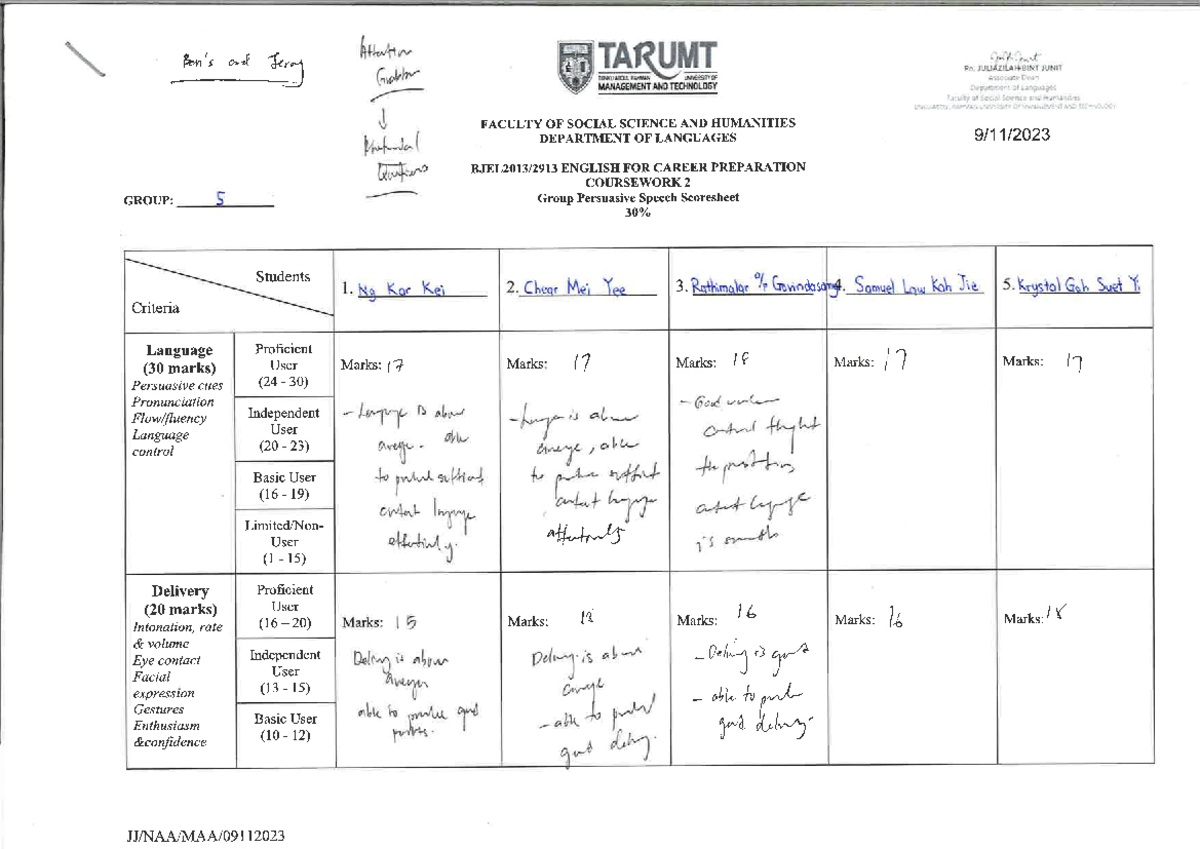 Ben's and Jerry
Attention
Grabber
↓
Rhetorical
Questions
TARUMT
TUNKU ABDUL RAHMAN UNIVERSITY OF
MANAGEMENT AND TECHNOLOGY
Pn. JULIAZILAH BINT JUNIT
Associate Dean
Department of Languages
Faculty of Social Science and Humanities
9/11/2023
FACULTY OF SOCIAL SCIENCE AND HUMANITIES
DEPARTMENT OF LANGUAGES
RJEL2013/2913 ENGLISH FOR CAREER PREPARATION
COURSEWORK 2
Group Persuasive Speech Scoresheet
30%
GROUP: 5
Students
Criteria
1. Ng Kar Kei
2. Chear Mei Yee
3. Rathimalar a/p Govindasamy
4. Samuel Law Kah Jie
5. Krystal Goh Suet Yi
Language
(30 marks)
Persuasive cues
Pronunciation
Flow/fluency
Language
control
Proficient
User
(24 - 30)
Independent
User
(20 - 23)
Basic User
(16 - 19)
Limited/Non-
User
(1 - 15)
Marks: 17
- Language is above
average. able
to
content language
effectively.
Marks: 17
- Language is above
average, able
to
content language
Marks: 18
- Good
control
the
content language
is
Marks: 17
Marks: 17
Delivery
(20 marks)
Intonation, rate
& volume
Eye contact
Facial
expression
Gestures
Enthusiasm
&confidence
Proficient
User
(16 – 20)
Independent
User
(13 - 15)
Basic User
(10 - 12)
Marks: 15
Delivery is above
average
able to produce good
Marks: 18
Delivery is above
average
- able to
good delivery.
Marks: 16
- Delivery is good
- able to
good delivery.
Marks: 16
Marks: 18
JJ/NAA/MAA/09112023